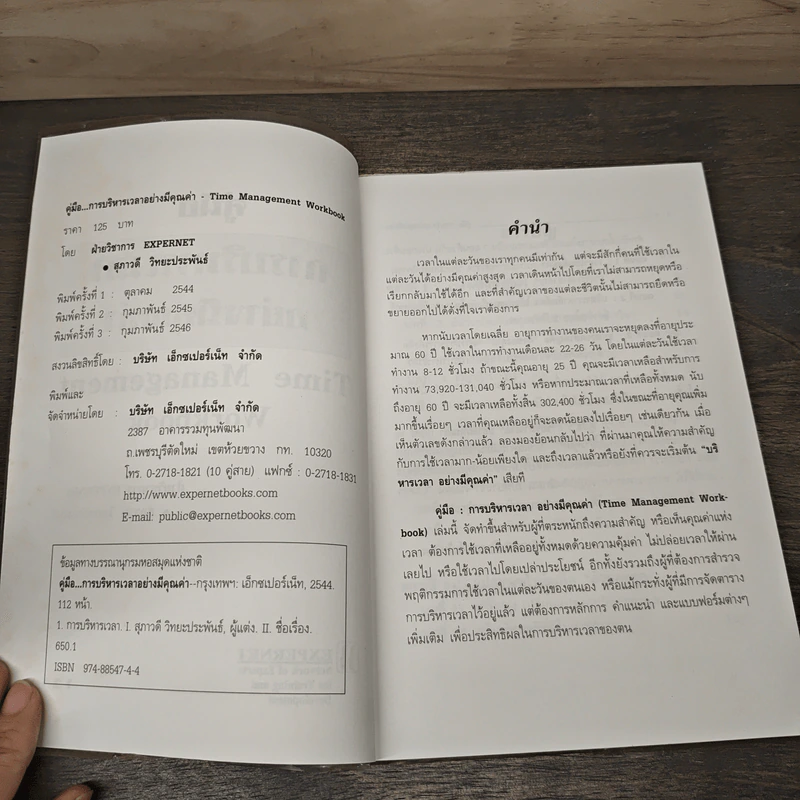 คู่มือ...การบริหารเวลาอย่างมีคุณค่า - Time Management Workbook
ราคา 125 บาท
โดย ฝ่ายวิชาการ EXPERNET
● สุภาวดี วิทยะประพันธ์
พิมพ์ครั้งที่ 1 : ตุลาคม 2544
พิมพ์ครั้งที่ 2 : กุมภาพันธ์ 2545
พิมพ์ครั้งที่ 3 : กุมภาพันธ์ 2546
สงวนลิขสิทธิ์โดย : บริษัท เอ็กซเปอร์เน็ท จำกัด
พิมพ์และ
จัดจำหน่ายโดย : บริษัท เอ็กซเปอร์เน็ท จำกัด
2387 อาคารรวมทุนพัฒนา
ถ.เพชรบุรีตัดใหม่ เขตห้วยขวาง กท. 10320
โทร. 0-2718-1821 (10 คู่สาย) แฟกซ์ : 0-2718-1831
http://www.expernetbooks.com
E-mail: public@expernetbooks.com
ข้อมูลทางบรรณานุกรมหอสมุดแห่งชาติ
คู่มือ...การบริหารเวลาอย่างมีคุณค่า--กรุงเทพฯ: เอ็กซเปอร์เน็ท, 2544.
112 หน้า.
1. การบริหารเวลา. I. สุภาวดี วิทยะประพันธ์, ผู้แต่ง. II. ชื่อเรื่อง.
650.1
ISBN 974-88547-4-4
คำนำ
เวลาในแต่ละวันของเราทุกคนมีเท่ากัน แต่จะมีสักกี่คนที่ใช้เวลาใน
แต่ละวันได้อย่างมีคุณค่าสูงสุด เวลาเดินหน้าไปโดยที่เราไม่สามารถหยุดหรือ
เรียกกลับมาใช้ได้อีก และที่สำคัญเวลาของแต่ละชีวิตนั้นไม่สามารถยืดหรือ
ขยายออกไปได้ดังที่ใจเราต้องการ
หากนับเวลาโดยเฉลี่ย อายุการทำงานของคนเราจะหยุดลงที่อายุประ
มาณ 60 ปี ใช้เวลาในการทำงานเดือนละ 22-26 วัน โดยในแต่ละวันใช้เวลา
ทำงาน 8-12 ชั่วโมง ถ้าขณะนี้คุณอายุ 25 ปี คุณจะมีเวลาเหลือสำหรับการ
ทำงาน 73,920-131,040 ชั่วโมง หรือหากประมาณเวลาที่เหลือทั้งหมด นับ
ถึงอายุ 60 ปี จะมีเวลาเหลือทั้งสิ้น 302,400 ชั่วโมง ซึ่งในขณะที่อายุคุณเพิ่ม
มากขึ้นเรื่อยๆ เวลาที่คุณเหลืออยู่ก็จะลดน้อยลงไปเรื่อยๆ เช่นเดียวกัน เมื่อ
เห็นตัวเลขดังกล่าวแล้ว ลองมองย้อนกลับไปว่า ที่ผ่านมาคุณให้ความสำคัญ
กับการใช้เวลามาก-น้อยเพียงใด และถึงเวลาแล้วหรือยังที่ควรจะเริ่มต้น “บริ
หารเวลา อย่างมีคุณค่า” เสียที
คู่มือ : การบริหารเวลา อย่างมีคุณค่า (Time Management Work-
book) เล่มนี้ จัดทำขึ้นสำหรับผู้ที่ตระหนักถึงความสำคัญ หรือเห็นคุณค่าแห่ง
เวลา ต้องการใช้เวลาที่เหลืออยู่ทั้งหมดด้วยความคุ้มค่า ไม่ปล่อยเวลาให้ผ่าน
เลยไป หรือใช้เวลาไปโดยเปล่าประโยชน์ อีกทั้งยังรวมถึงผู้ที่ต้องการสำรวจ
พฤติกรรมการใช้เวลาในแต่ละวันของตนเอง หรือแม้กระทั่งผู้ที่มีการจัดตาราง
การบริหารเวลาไว้อยู่แล้ว แต่ต้องการหลักการ คำแนะนำ และแบบฟอร์มต่างๆ
เพิ่มเติม เพื่อประสิทธิผลในการบริหารเวลาของตน